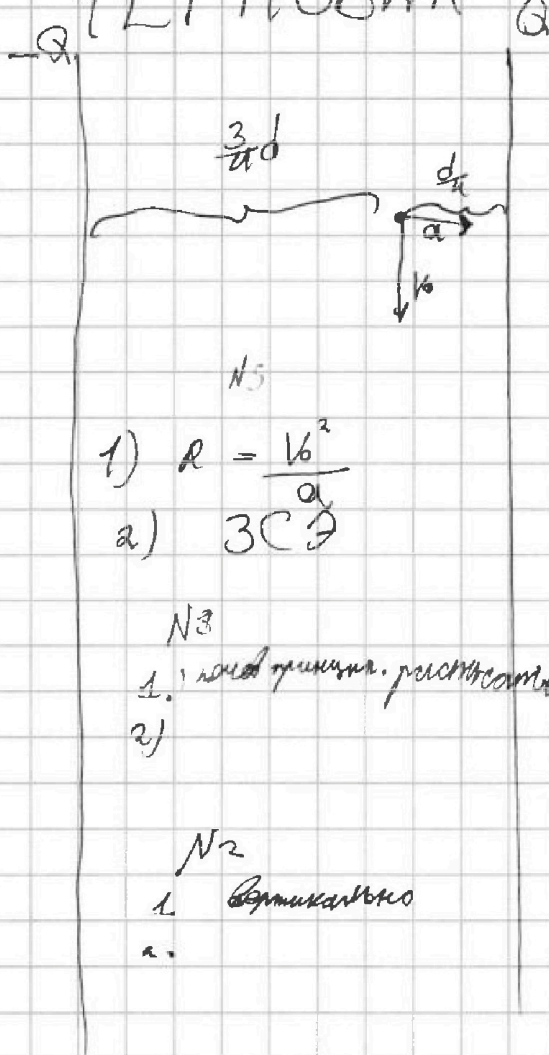 -Q
Q
3/4 d
d/4
a
V₀
N5
1) R = V₀²/a
2) ЗСЭ
N3
1.)
2)
N2
1. вертикально
2.